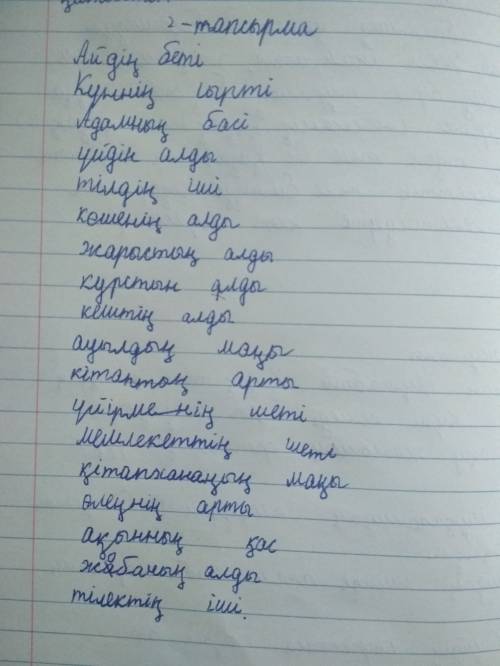 2-тапсырма
Айдің беті
Күннің сырті
Адамның басі
үйдін алды
тілдің іші
көшенің алды
жарыстың алды
курстын алды
кештің алды
ауылдың маңы
кітаптың арты
үйірменің шеті
мемлекеттің шеті
қітапхананың маңы
өлеңнің арты
ақынның қас
жобаның алды
тілектің іші.